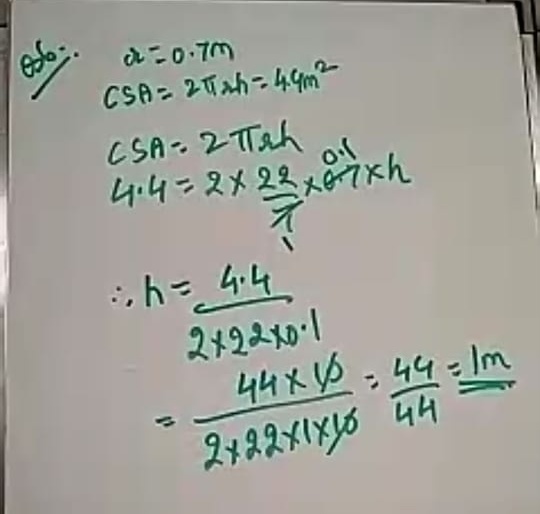 Soln:-
r = 0.7m
CSA = 2πrh = 4.4m²
CSA = 2πrh
4.4 = 2 × 22/7 × 0.7 × h
0.1
1
∴ h = 4.4 / 2×22×0.1
= 44×10 / 2×22×1×10 = 44/44 = 1m